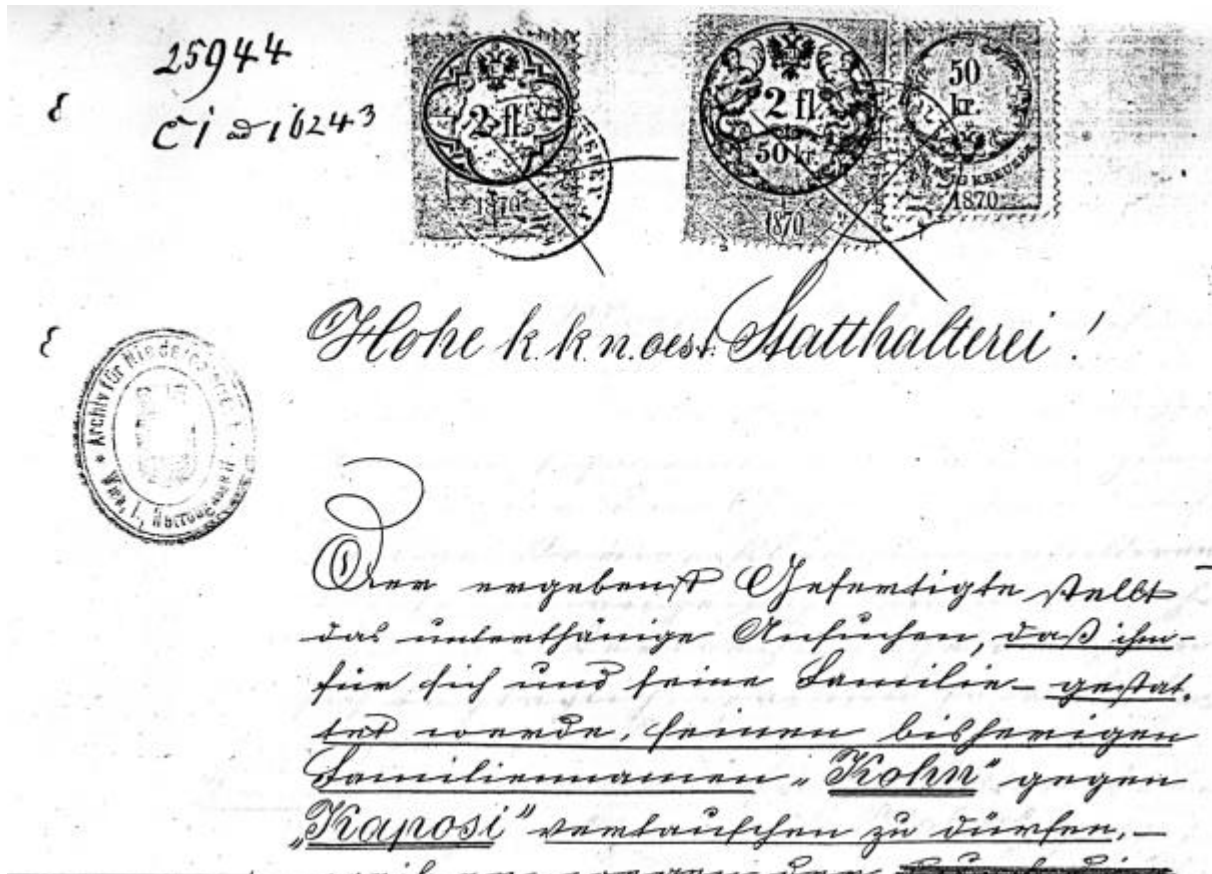 25944
C1 ad 16243
2 fl.
1870
2 fl.
50 kr.
1870
50
kr.
1870
Hohe k. k. n. oest. Statthalterei!
Archiv für Niederösterreich
Wien, I., Herrengasse
Der ergebenst Gefertigte stellt
das unterthänige Ansuchen, daß ihm
für sich und seine Familie – gestat-
tet werde, seinen bisherigen
Familiennamen „Kohn" gegen
„Kaposi" vertauschen zu dürfen, –